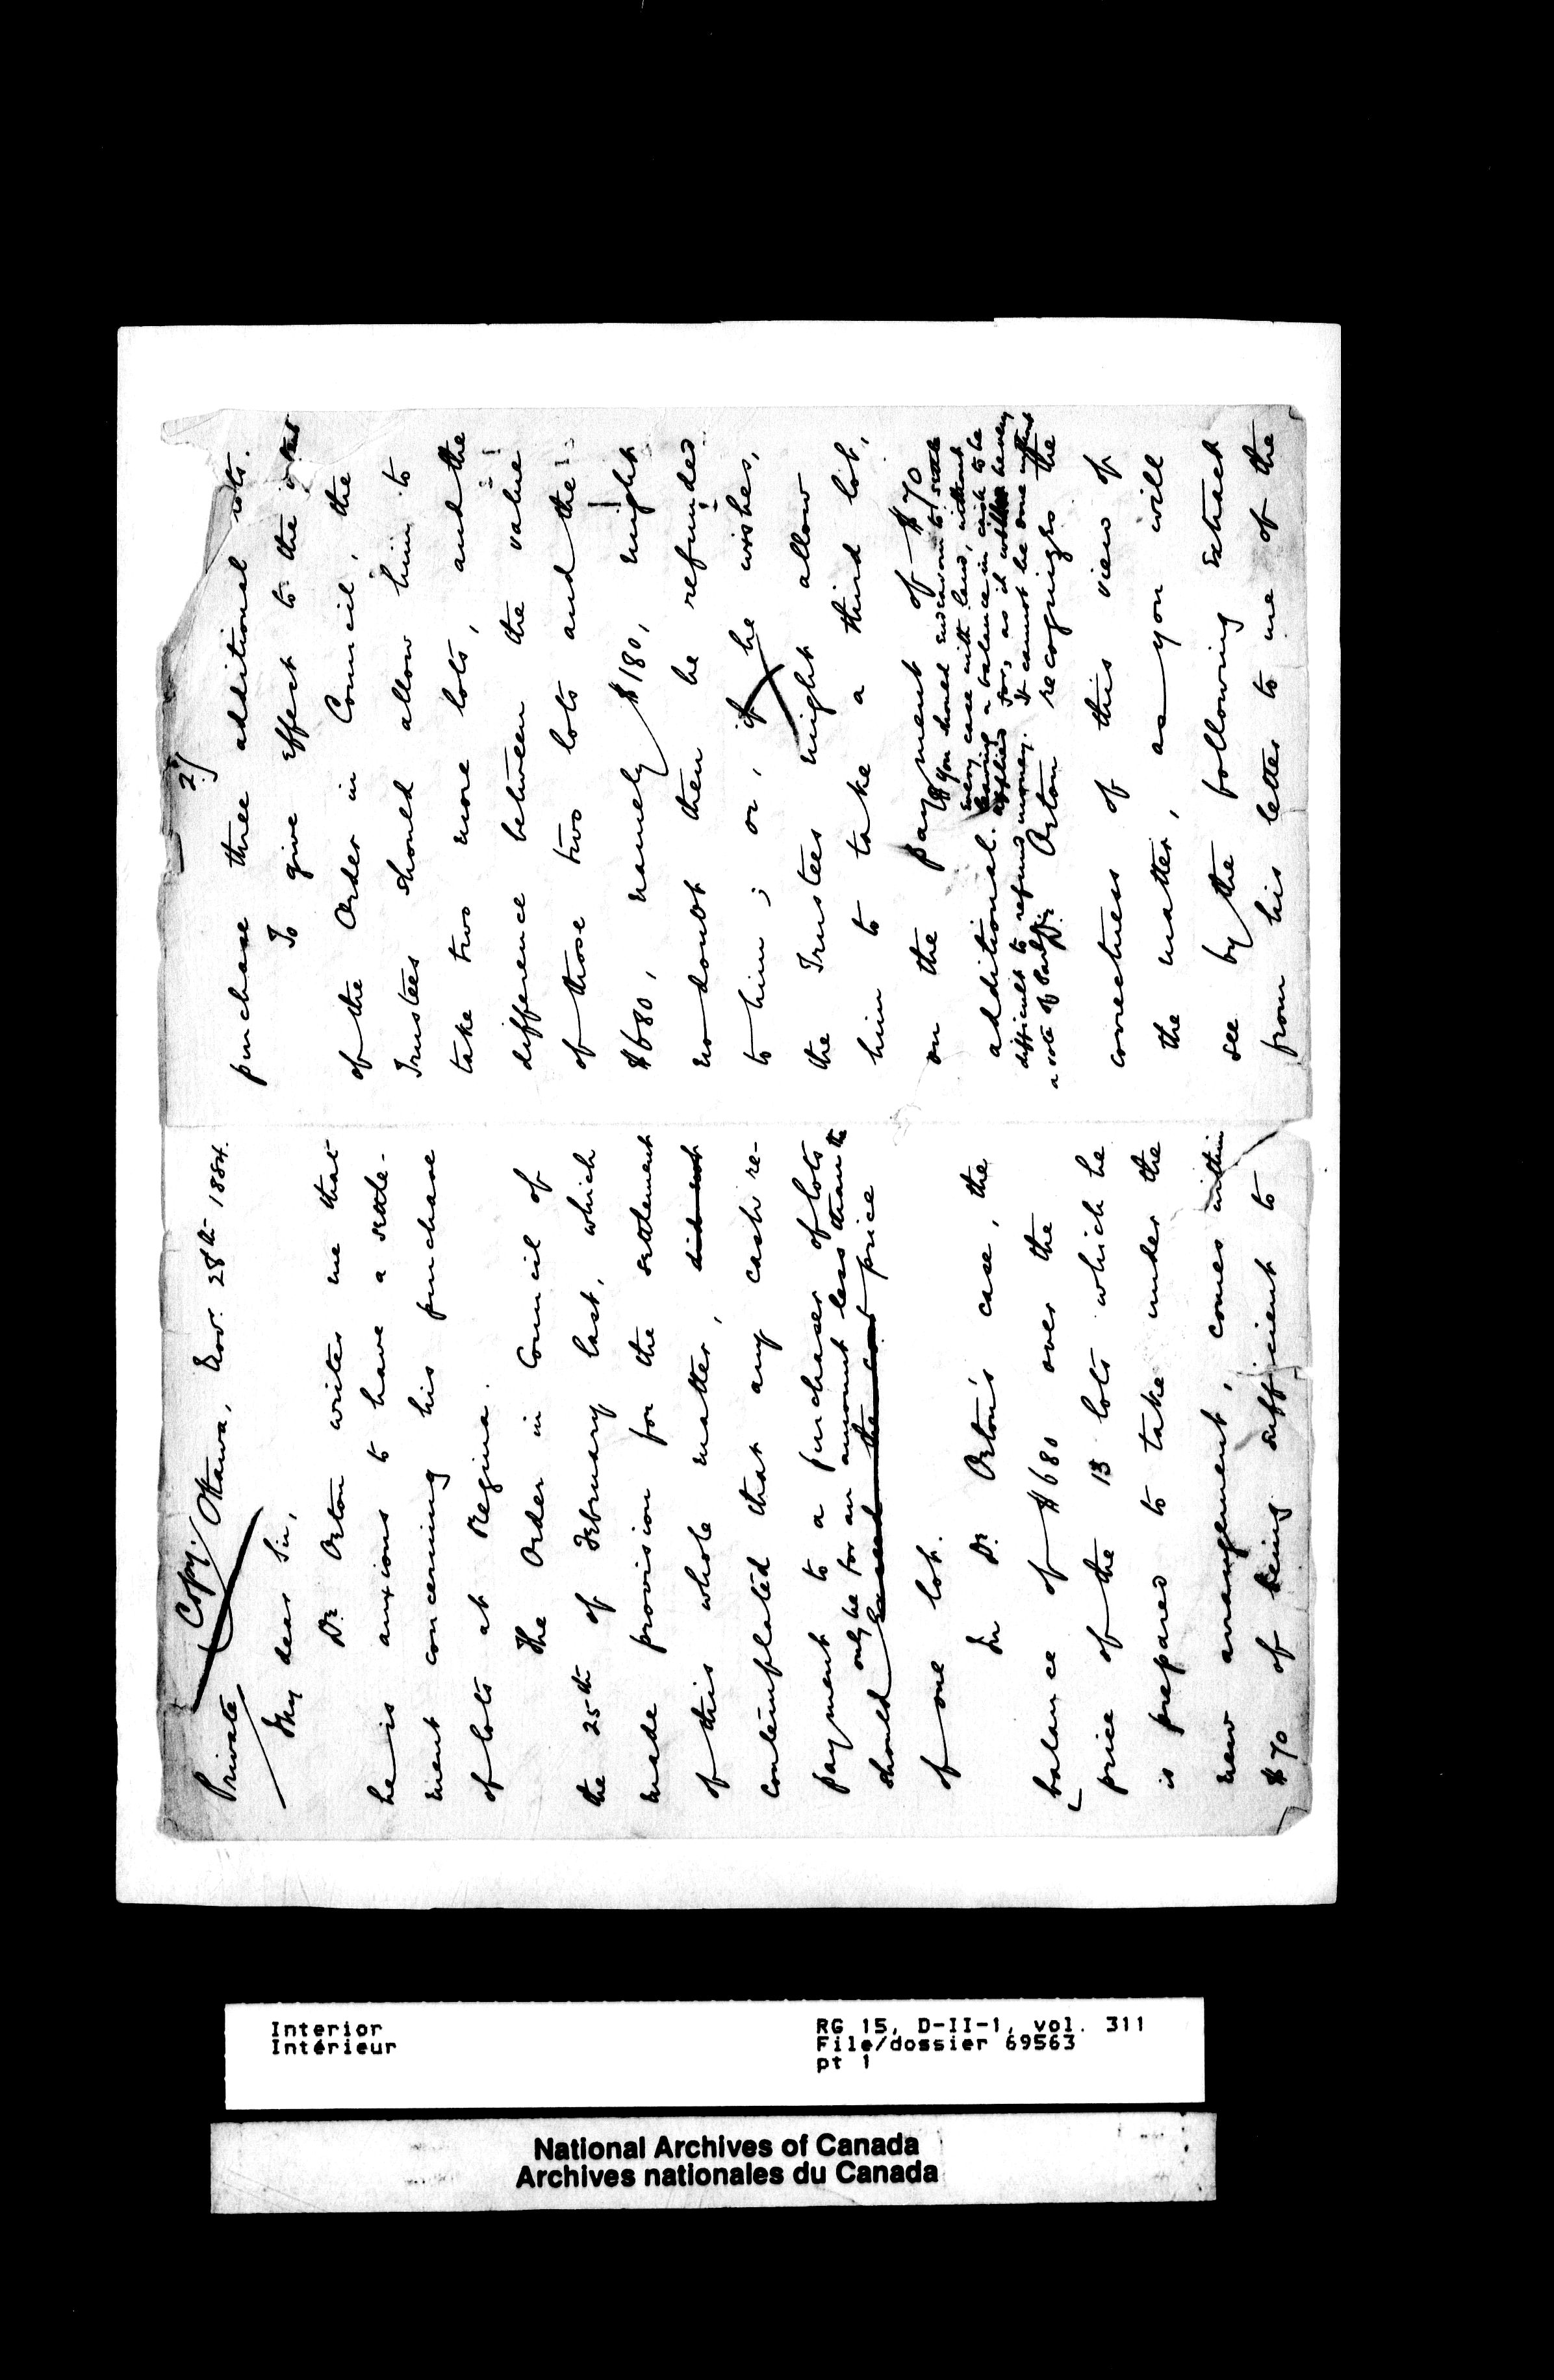 Private
Copy.
Ottawa, Nov. 28th 1884.
My dear Sir,
Dr. Orton writes me that
he is anxious to have a settle-
ment concerning his purchase
of lots at Regina.
The Order in Council of
the 25th of February last, which
made provision for the settlement
of this whole matter, did not
contemplated that any cash re-
payment to a purchaser of lots
only be for an amount less than the
should exceed the cost price
of one lot.
In Dr. Orton's case, the
balance of $680 over the
price of the 13 lots which he
is prepared to take under the
new arrangement, comes within
$70 of being sufficient to
2/
purchase three additional lots.
To give effect to the
of the Order in Council, the
Trustees should allow him to
take two more lots, and the
difference between the value
of those two lots and the
$680, namely $180, might
no doubt then be refunded
to him; or, if he wishes,
the Trustees might allow
him to take a third lot,
on the payment of $70
additional.
You should endeavour to settle
every case with land, without
leaving a balance in cash to be
applied for, as it will be very
difficult to refund money. It cannot be done without
a vote of Parlt.
Dr. Orton recognizes the
correctness of this view of
the matter, as you will
see by the following extract
from his letter to me of the
Interior
Intérieur
RG 15, D-II-1, vol. 311
File/dossier 69563
pt 1
National Archives of Canada
Archives nationales du Canada